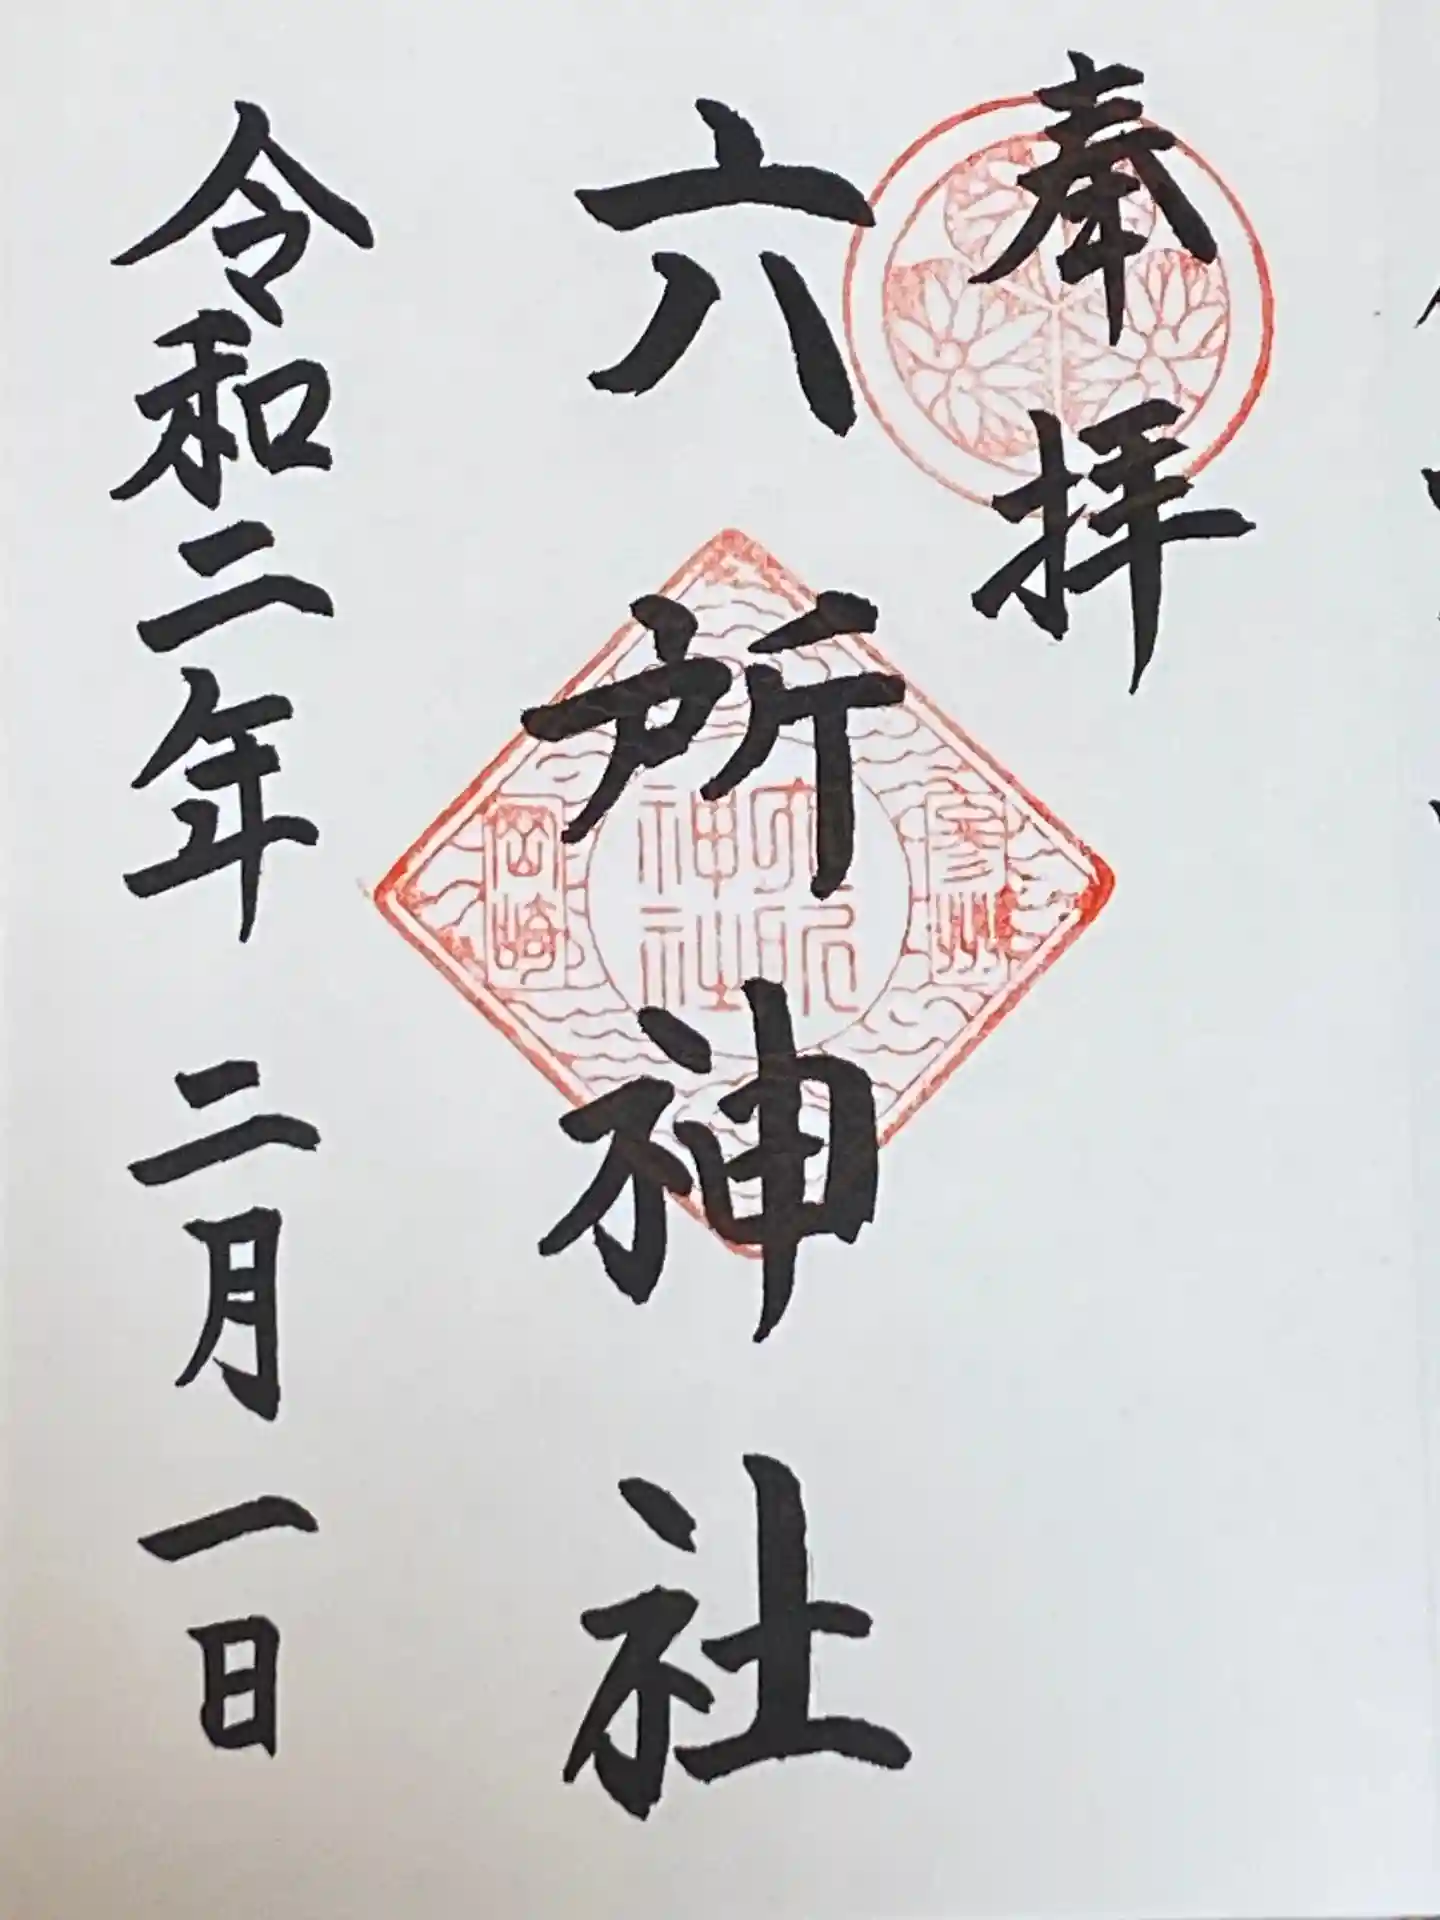 奉拝
六所神社
令和二年 二月一日
參州
六所
神社
岡崎